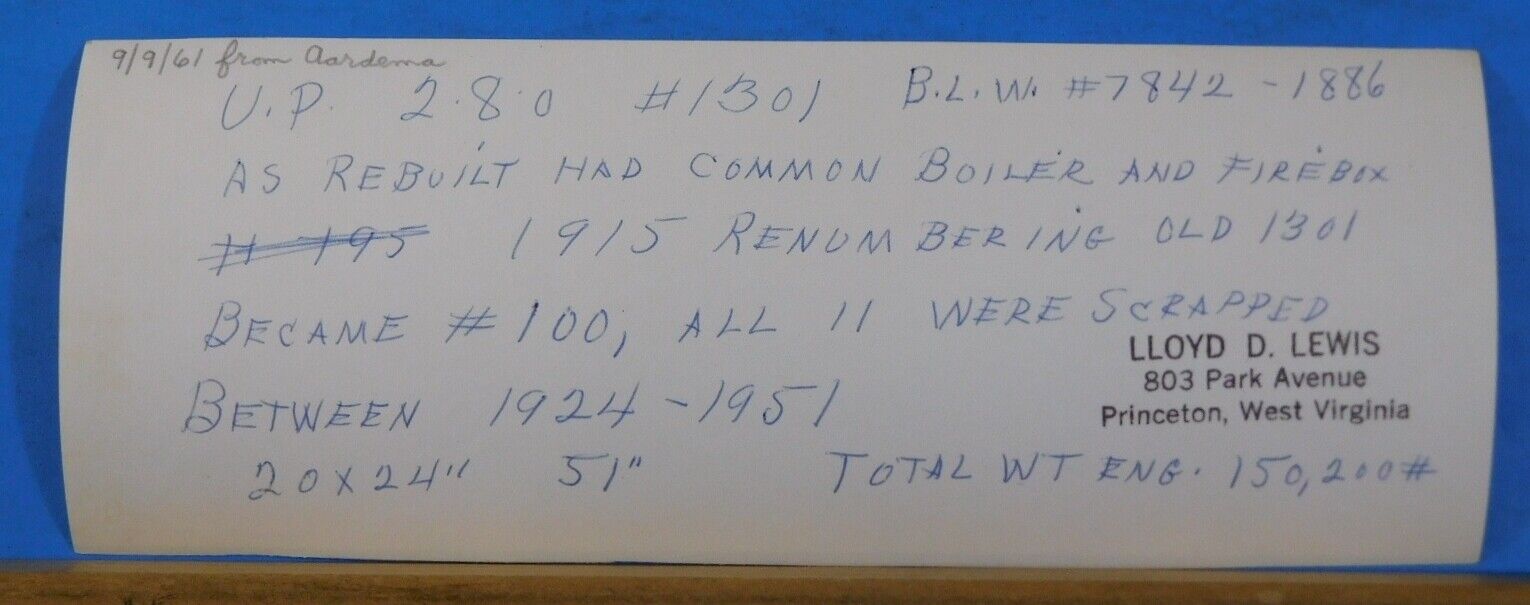 9/9/61 from Aardema
U.P. 2-8-0 #1301 B.L.W. #7842 - 1886
AS REBUILT HAD COMMON BOILER AND FIREBOX
# 195 1915 RENUMBERING OLD 1301
BECAME #100, ALL 11 WERE SCRAPPED
LLOYD D. LEWIS
803 Park Avenue
Princeton, West Virginia
BETWEEN 1924-1951
20x24" 51" TOTAL WT ENG. 150,200#